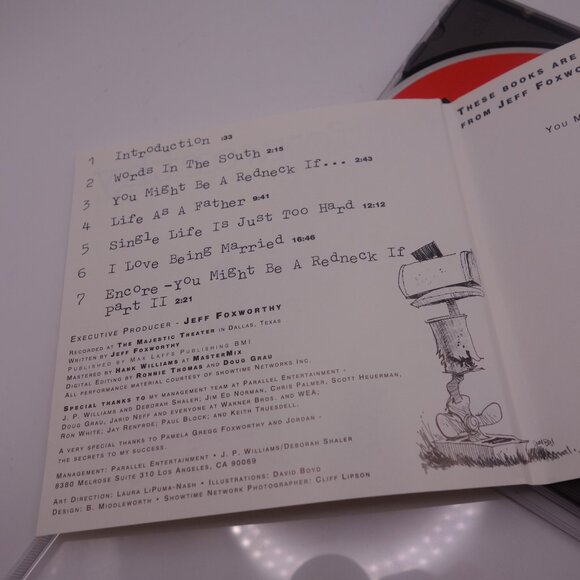 1 Introduction :33
2 Words In The South 2:15
3 You Might Be A Redneck If... 2:43
4 Life As A Father 9:41
5 Single Life Is Just Too Hard 12:12
6 I Love Being Married 16:46
7 Encore-You Might Be A Redneck If
Part II 2:21
Executive Producer - Jeff Foxworthy
Recorded at The Majestic Theater in Dallas, Texas
Written by Jeff Foxworthy
Published by Max Laffs Publishing BMI
Mastered by Hank Williams at MasterMix
Digital Editing by Ronnie Thomas and Doug Grau
All performance material courtesy of Showtime Networks Inc.
Special thanks to my management team at Parallel Entertainment -
J. P. Williams and Deborah Shaler; Jim Ed Norman, Chris Palmer, Scott Heuerman,
Doug Grau, Jarid Neff and everyone at Warner Bros. and WEA;
Ron White; Jay Renfroe; Paul Block; and Keith Truesdell.
A very special thanks to Pamela Gregg Foxworthy and Jordan -
the secrets to my success.
Management: Parallel Entertainment • J. P. Williams/Deborah Shaler
8380 Melrose Suite 310 Los Angeles, CA 90069
Art Direction: Laura LiPuma-Nash • Illustrations: David Boyd
Design: B. Middleworth • Showtime Network Photographer: Cliff Lipson
These books are
from Jeff Foxwor
You M